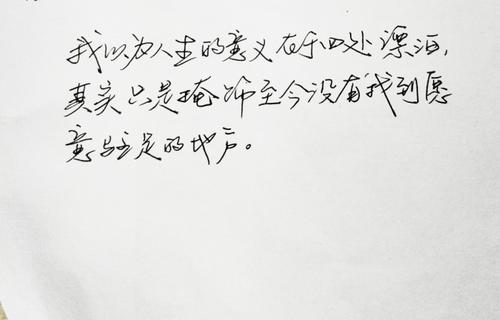 我以为人生的意义在于四处漂泊,
其实只是掩饰至今没有找到愿
意驻足的地方。